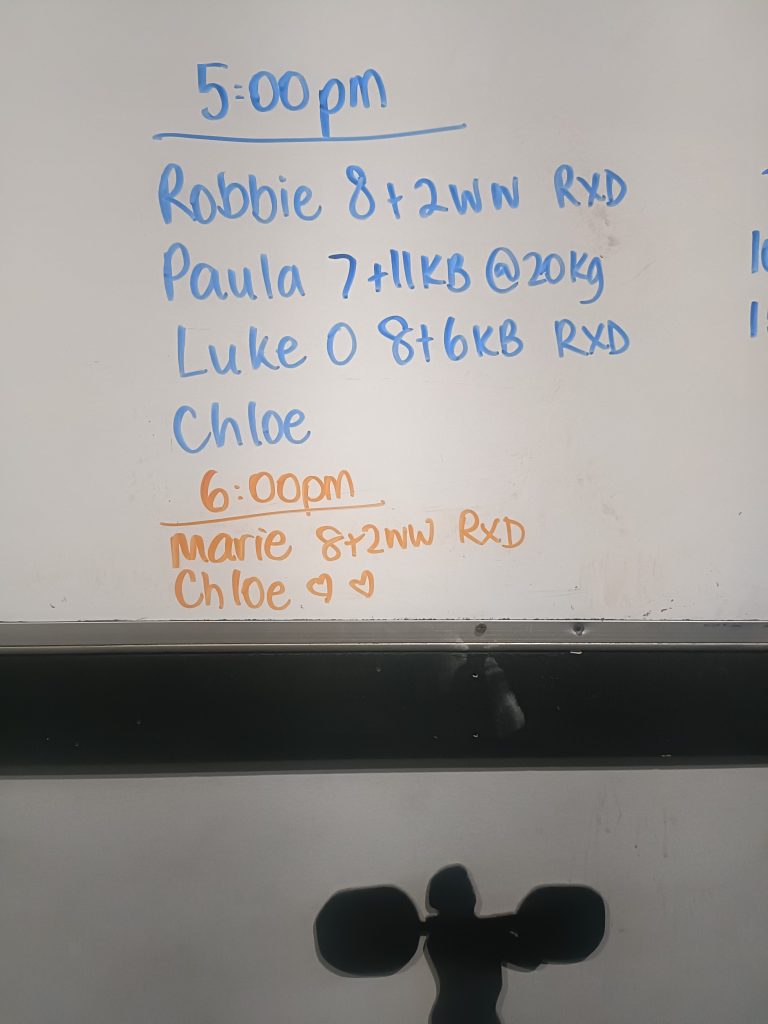 5:00pm
Robbie 8+2WN RXD
Paula 7+11KB @20Kg
Luke O 8+6KB RXD
Chloe
6:00pm
Marie 8+2WW RXD
Chloe ♡ ♡